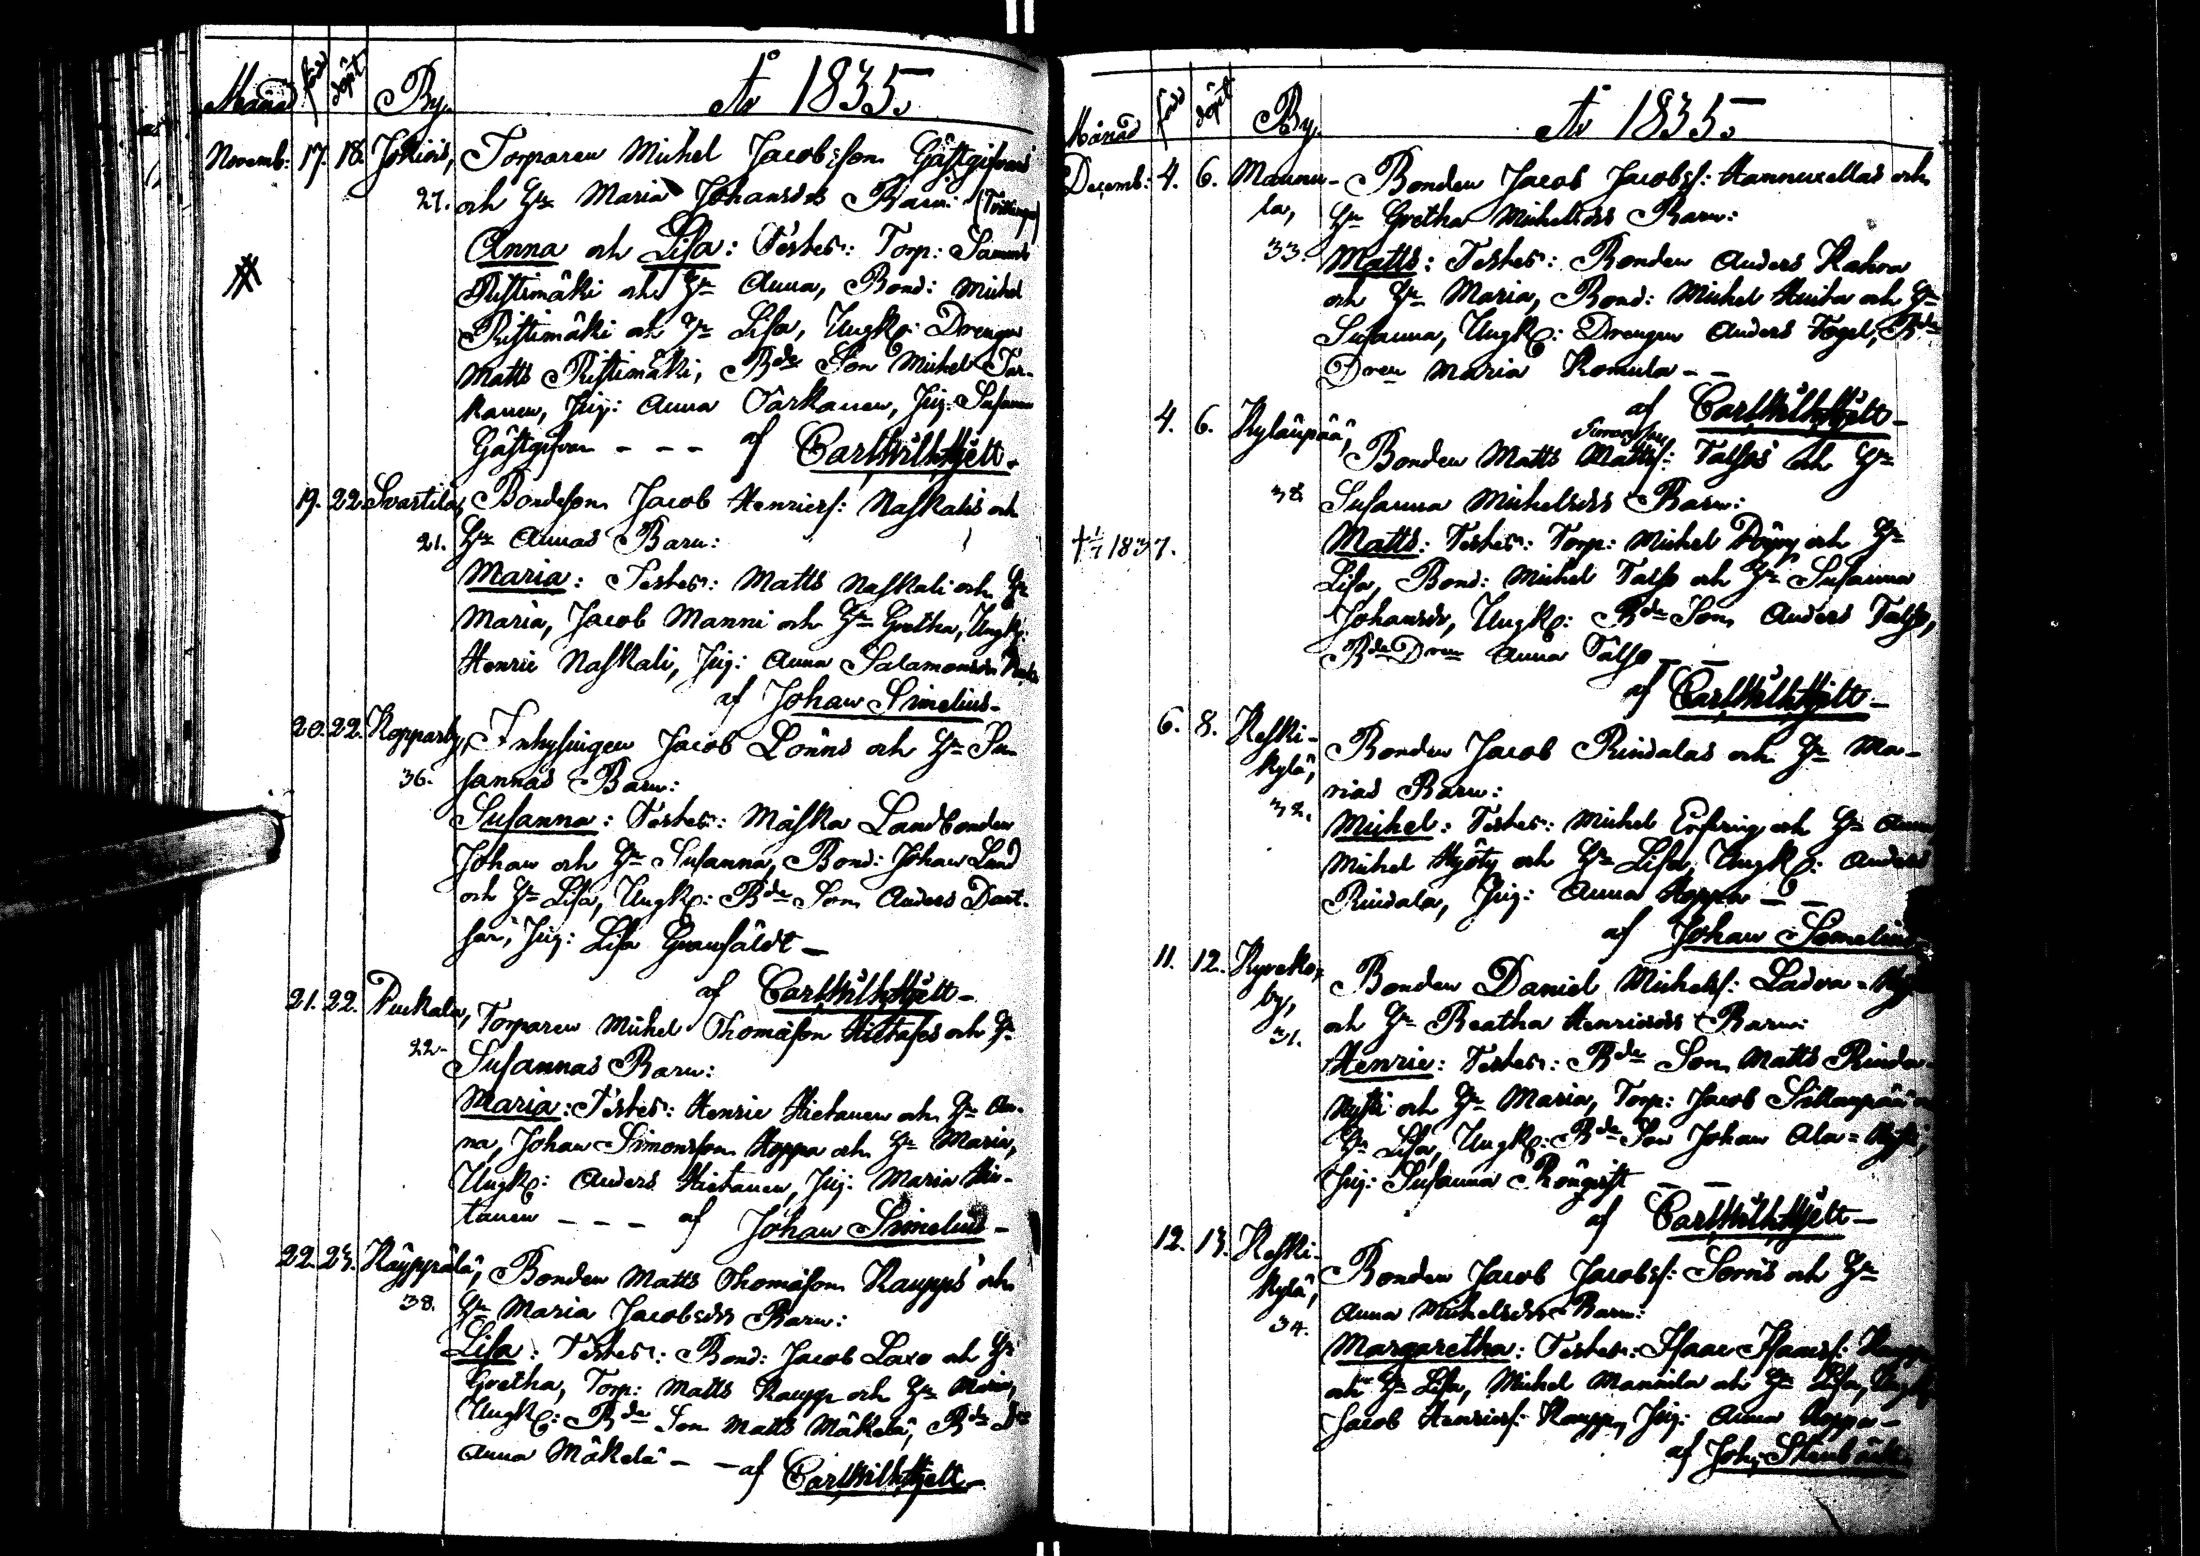 Månad född döpt By. År 1835.
Novemb: 17. 18. Jokiois, Torparen Michel Jacobsson Gästgifvars
27. och Hu Maria Johansdrs Barn: (Tvillingar)
Anna och Lisa: Testes: Torp: Samuel
Ristimäki och Hu Anna, Bond: Michel
Ristimäki och Hu Lisa, Ungk: Drengen
Matts Ristimäki, Bde Son Michel Tar-
kanen, Pig: Anna Tarkanen, Pig: Susanna
Gästgifvar - - - af Carl Wilh Hjelt.
19. 22. Svartila, Bondeson Jacob Henrics: Naskalis och
21. Hu Annas Barn:
Maria: Testes: Matts Naskali och Hu
Maria, Jacob Manni och Hu Gretha, Ungk:
Henric Naskali, Pig: Anna Salamonsdr
af Johan Simelius-
20. 22. Kopparby, Inhysingen Jacob Lönns och Hu Su-
36. sannas Barn:
Susanna: Testes: Mäska Landbonden
Johan och Hu Susanna, Bond: Johan Lund
och Hu Lisa, Ungk: Bde Son Anders Dant-
sar, Pig: Lisa Granfäldt -
af Carl Wilh Hjelt -
21. 22. Puckala, Torparen Michel Thomasson Hietases och Hu
22. Susannas Barn:
Maria: Testes: Henric Hietanen och Hu An-
na, Johan Simonsson Hoppa och Hu Maria,
Ungk: Anders Hietanen, Pig: Maria Hie-
tanen - - - af Johan Simelius -
22. 23. Käyppälä, Bonden Matts Thomasson Kaupps och
38. Hu Maria Jacobsdrs Barn:
Lisa: Testes: Bond: Jacob Laxo och Hu
Gretha, Torp: Matts Kaupp och Hu Maria,
Ungk: Bde Son Matts Mäkelä, Bde Dr
Anna Mäkelä - - af Carl Wilh Hjelt -
Månad född döpt By. År 1835.
Decemb: 4. 6. Mannu- Bonden Jacob Jacobs: Hannuxellas och
la, Hu Gretha Michelsdrs Barn:
33. Matts: Testes: Bonden Anders Rahva
och Hu Maria, Bond: Michel Huita och Hu
Susanna, Ungk: Drengen Anders Fogel, Bde
Dren Maria Romula - -
af Carl Wilh Hjelt -
4. 6. Kyläupää, Bonden Matts Matts: Talsos och Hu
38. Susanna Michelsdrs Barn:
† 1/7 1837. Matts: Testes: Torp: Michel Pöyry och Hu
Lisa, Bond: Michel Talso och Hu Susanna
Johansdr, Ungk: Bde Son Anders Talso,
Bde Dren Anna Talso - -
af Carl Wilh Hjelt -
6. 8. Keski- Bonden Jacob Rindalas och Hu Ma-
kylä, rias Barn:
32. Michel: Testes: Michel Erfving och Hu Anna
Michel Hyöty och Hu Lisa, Ungk: Anders
Rindala, Pig: Anna Hoppa - -
af Johan Simelius
11. 12. Kyreko- Bonden Daniel Michels: Ladva =
by, och Hu Beatha Henricsdrs Barn:
31. Henric: Testes: Bde Son Matts Rinda-
och Hu Maria, Torp: Jacob Sillanpää
Hu Lisa, Ungk: Bde Son Johan Ala=
Pig: Susanna Rönqvist - -
af Carl Wilh Hjelt -
12. 13. Keski- Bonden Jacob Jacobs: Sorris och Hu
kylä, Anna Michelsdrs Barn:
34. Margaretha: Testes: Isaac Isaacs:
och Hu Lisa, Michel Mannila och Hu Lisa, Ungk
Jacob Henrics: Kaupp, Pig: Anna Hoppa -
af Joh: Stenbäck